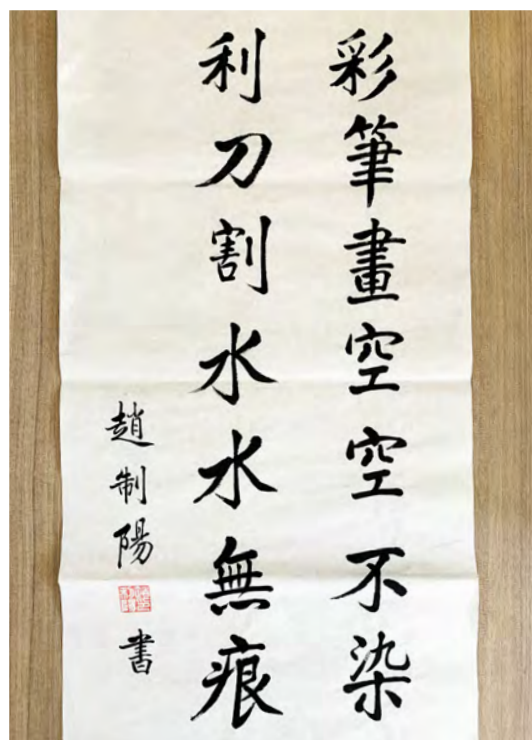 彩筆畫空空不染
利刀割水水無痕
趙制陽書